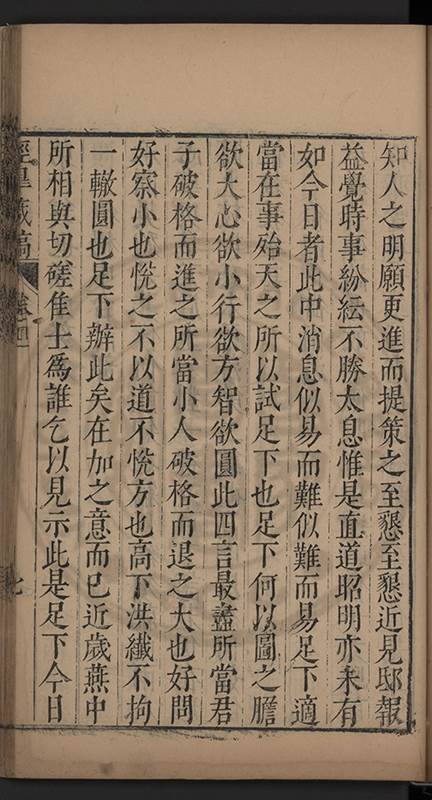 知人之明願更進而提策之至懇至懇近見邸報
益覺時事紛紜不勝太息惟是直道昭明亦未有
如今日者此中消息似易而難似難而易足下適
當在事始天之所以試足下也足下何以圖之膽
欲大心欲小行欲方智欲圓此四言最盡所當君
子破格而進之所當小人破格而退之大也好問
好察小也悅之不以道不悅方也高下洪纖不拘
一轍圓也足下辦此矣在加之意而已近歲燕中
所相與切磋隹士爲誰乞以見示此是足下今日
涇皋藏稿
卷四
七